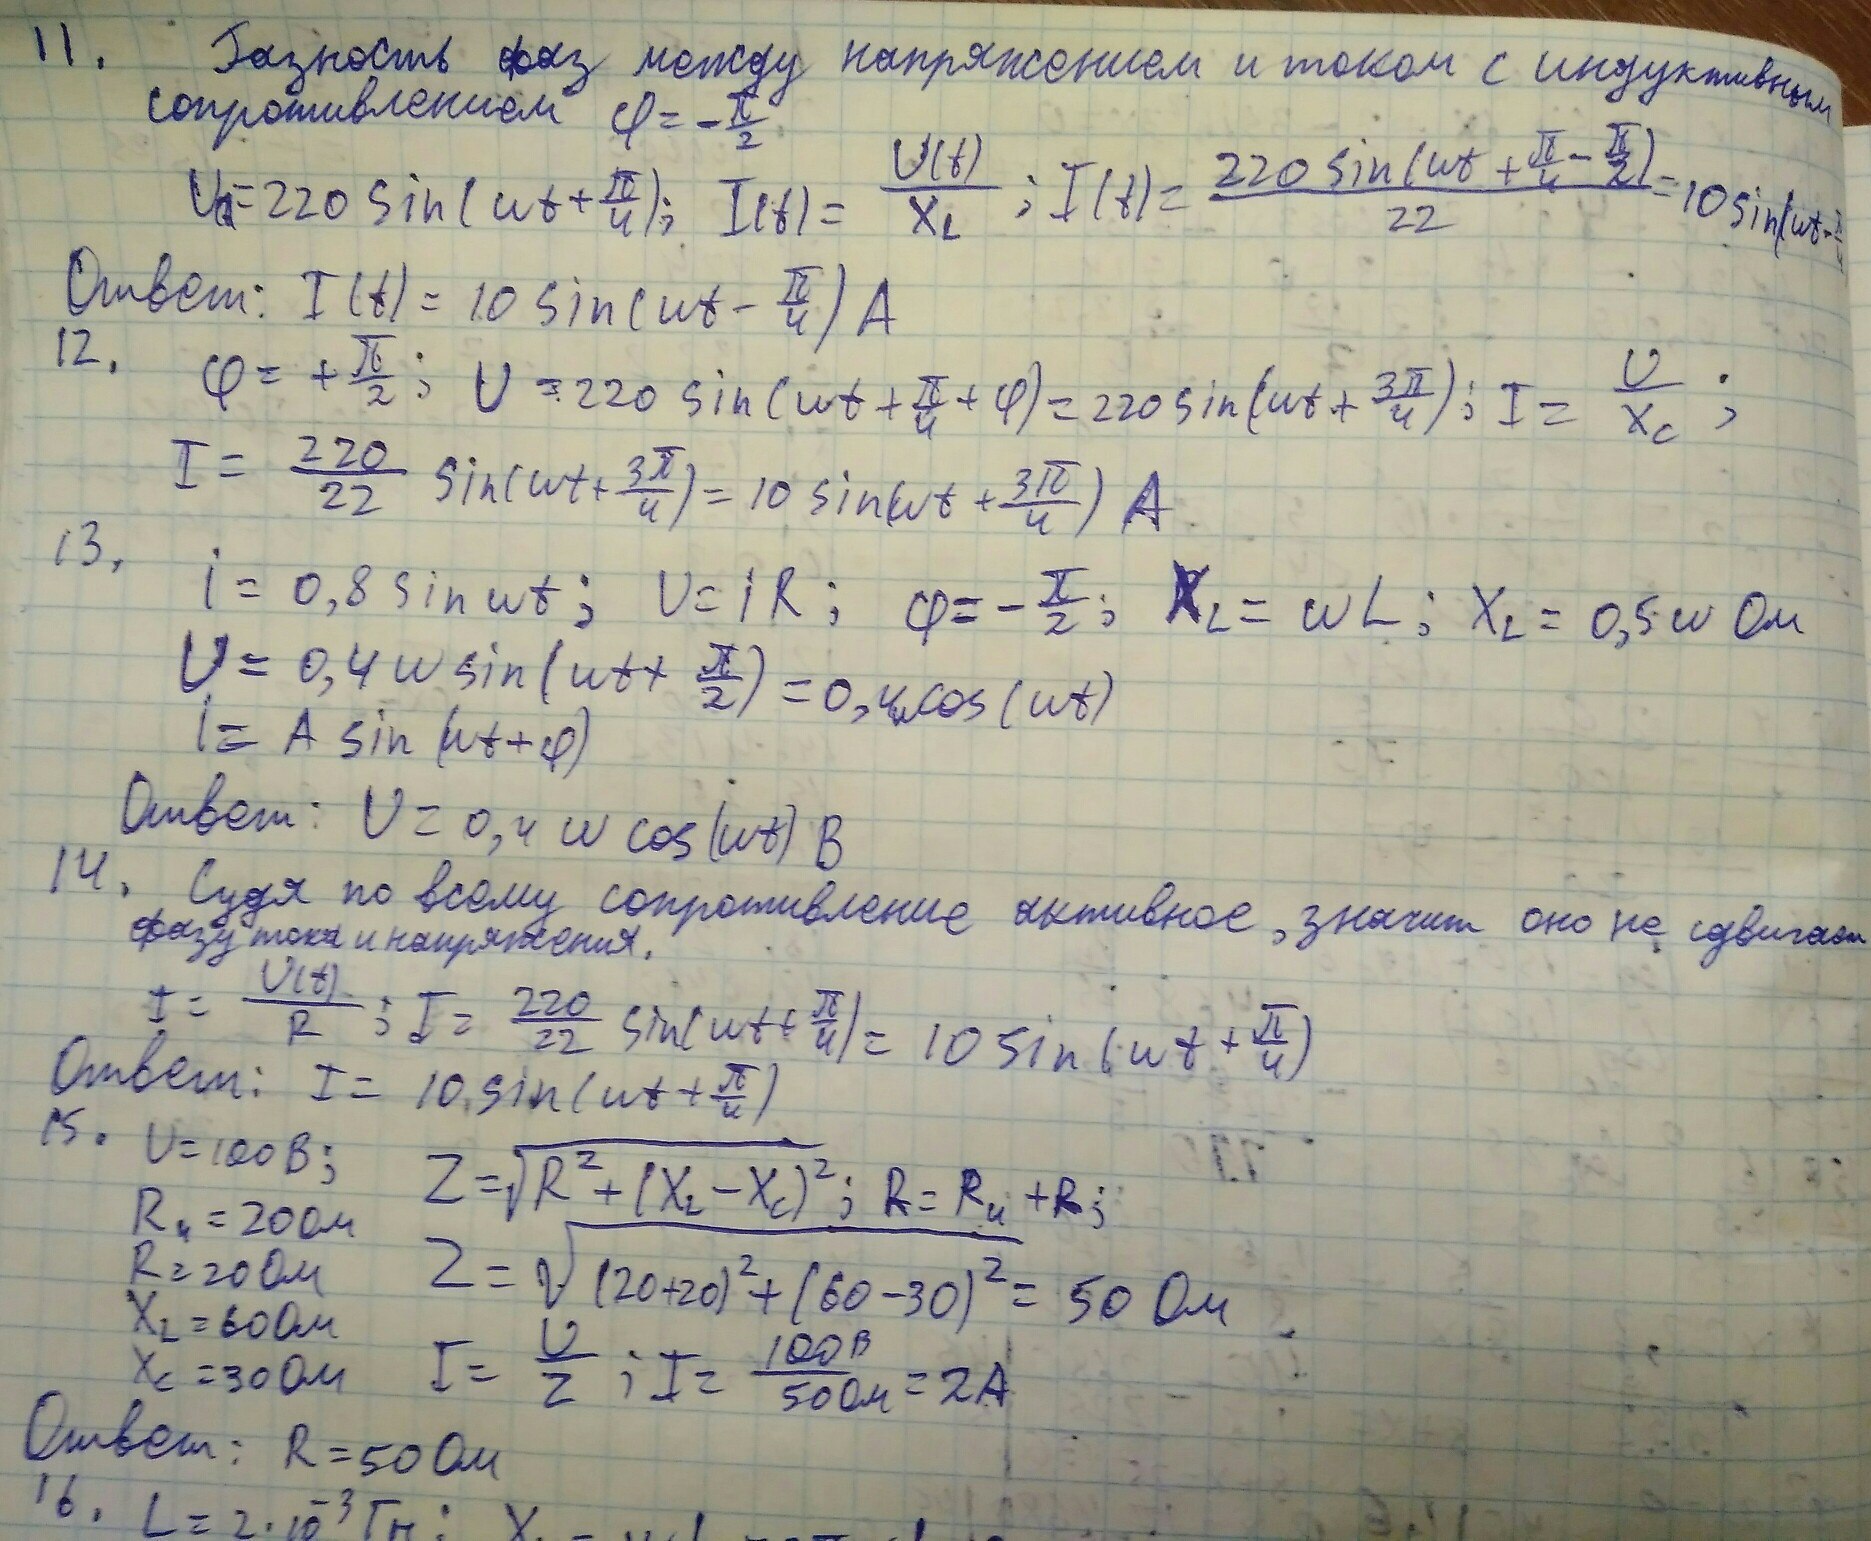 11. Газность фаз между напряжением и током с индуктивным
сопротивлением φ = -π/2
U = 220 sin(ωt + π/4); I(t) = U(t)/X_L ; I(t) = 220 sin(ωt + π/4 - π/2)/22 = 10 sin(ωt -
Ответ: I(t) = 10 sin(ωt - π/4) А
12. φ = + π/2; U = 220 sin(ωt + π/4 + φ) = 220 sin(ωt + 3π/4); I = U/X_c ;
I = 220/22 sin(ωt + 3π/4) = 10 sin(ωt + 3π/4) А
13. i = 0,8 sin ωt; U = iR; φ = - π/2; X_L = ωL; X_L = 0,5ω Ом
U = 0,4 ω sin(ωt + π/2) = 0,4ω cos(ωt)
i = A sin(ωt + φ)
Ответ: U = 0,4 ω cos(ωt) В
14. Судя по всему сопротивление активное, значит оно не сдвигает
фазу тока и напряжения.
I = U(t)/R ; I = 220/22 sin(ωt + π/4) = 10 sin(ωt + π/4)
Ответ: I = 10 sin(ωt + π/4)
15. U = 100 В; Z = √(R² + (X_L - X_c)²); R = R_и + R;
R_и = 20 Ом
R = 20 Ом Z = √((20+20)² + (60-30)²) = 50 Ом
X_L = 60 Ом
X_c = 30 Ом I = U/Z ; I = 100В/50Ом = 2А
Ответ: R = 50 Ом
16. L = 2·10⁻³ Гн;